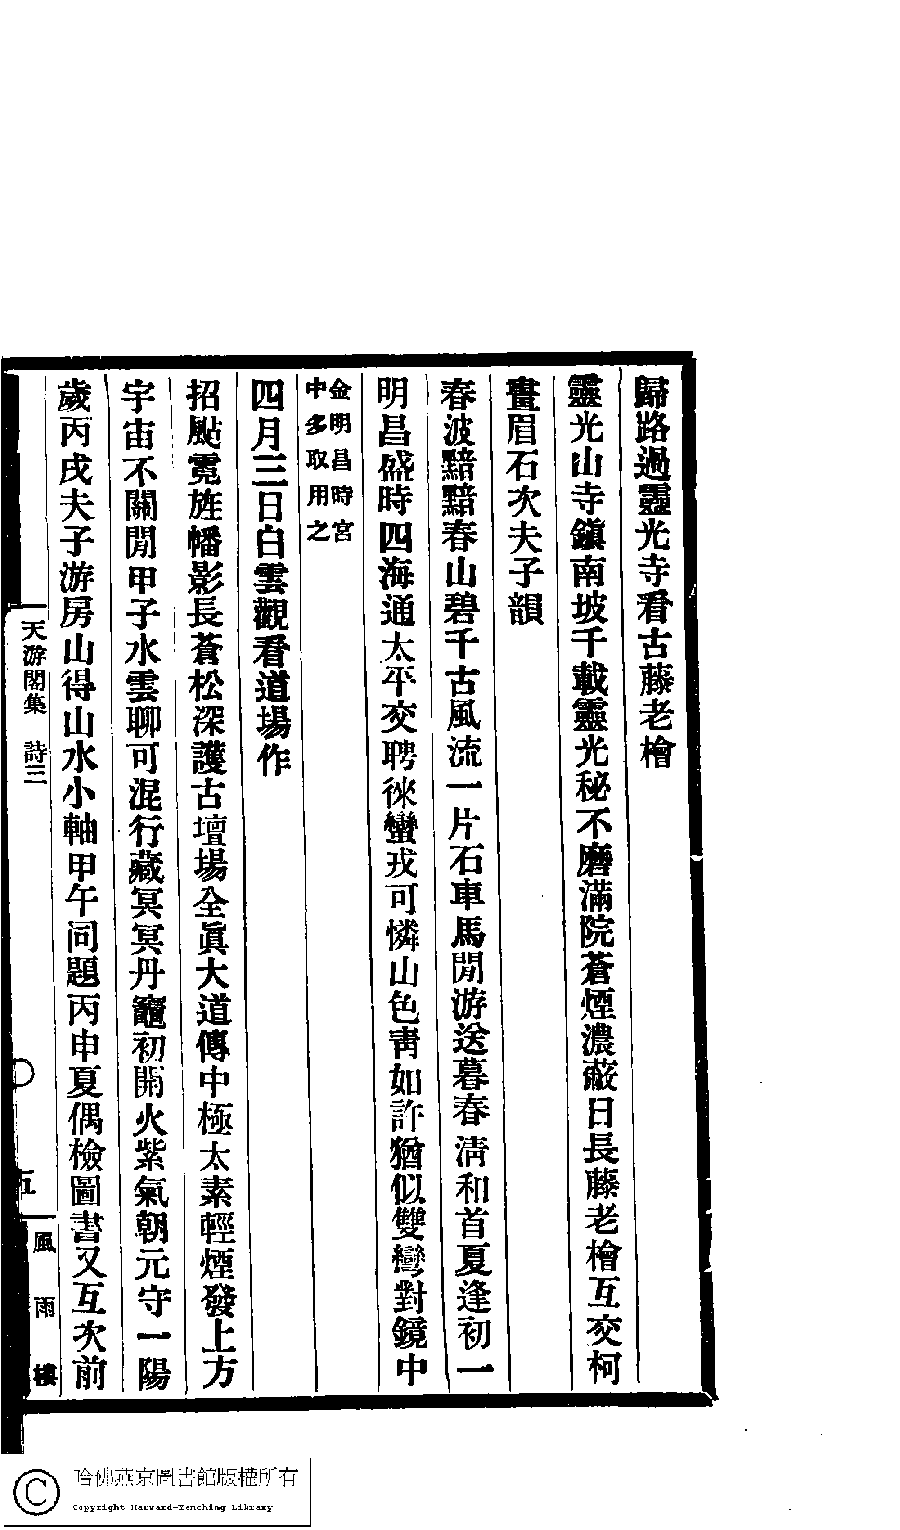 歸路過靈光寺看古藤老檜
靈光山寺鎭南坡千載靈光秘不磨滿院蒼煙濃蔽日長藤老檜互交柯
畫眉石次夫子韻
春波黯黯春山碧千古風流一片石車馬閒游送暮春淸和首夏逢初一
明昌盛時四海通太平交聘徠蠻戎可憐山色靑如許猶似雙鸞對鏡中
金明昌時宮
中多取用之
四月三日白雲觀看道場作
招颭霓旌幡影長蒼松深護古壇場全眞大道傳中極太素輕煙發上方
宇宙不關閒甲子水雲聊可混行藏冥冥丹竈初開火紫氣朝元守一陽
歲丙戌夫子游房山得山水小軸甲午同題丙申夏偶檢圖書又互次前
天游閣集 詩三
五
風雨樓
哈佛燕京圖書館版權所有
Copyright Harvard-Yenching Library